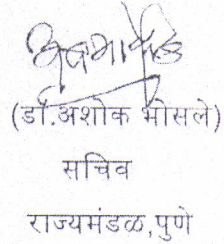 (डॉ.अशोक भोसले)
सचिव
राज्यमंडळ,पुणे